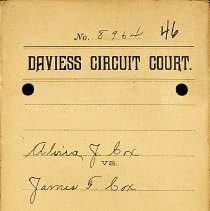 No. 8964 46
DAVIESS CIRCUIT COURT.
Alvira J. Cox
VS.
James F Cox